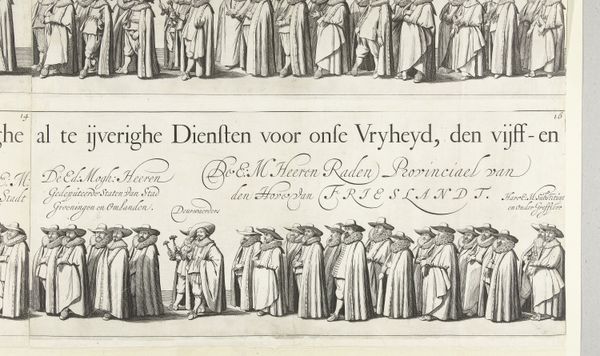 14
16
ghe al te ijverighe Dienſten voor onſe Vryheyd, den vijff-en
E. M.
Stadt
De Ed. Mogh: Heeren
Gedeputeerde Staten van Stad
Groeningen en Omlanden.
Deurwaerders
De E. M Heeren Raden Provinciael van
den Hove van FRIESLANDT.
Hare E. M Subſtituut
en Onder Griffier